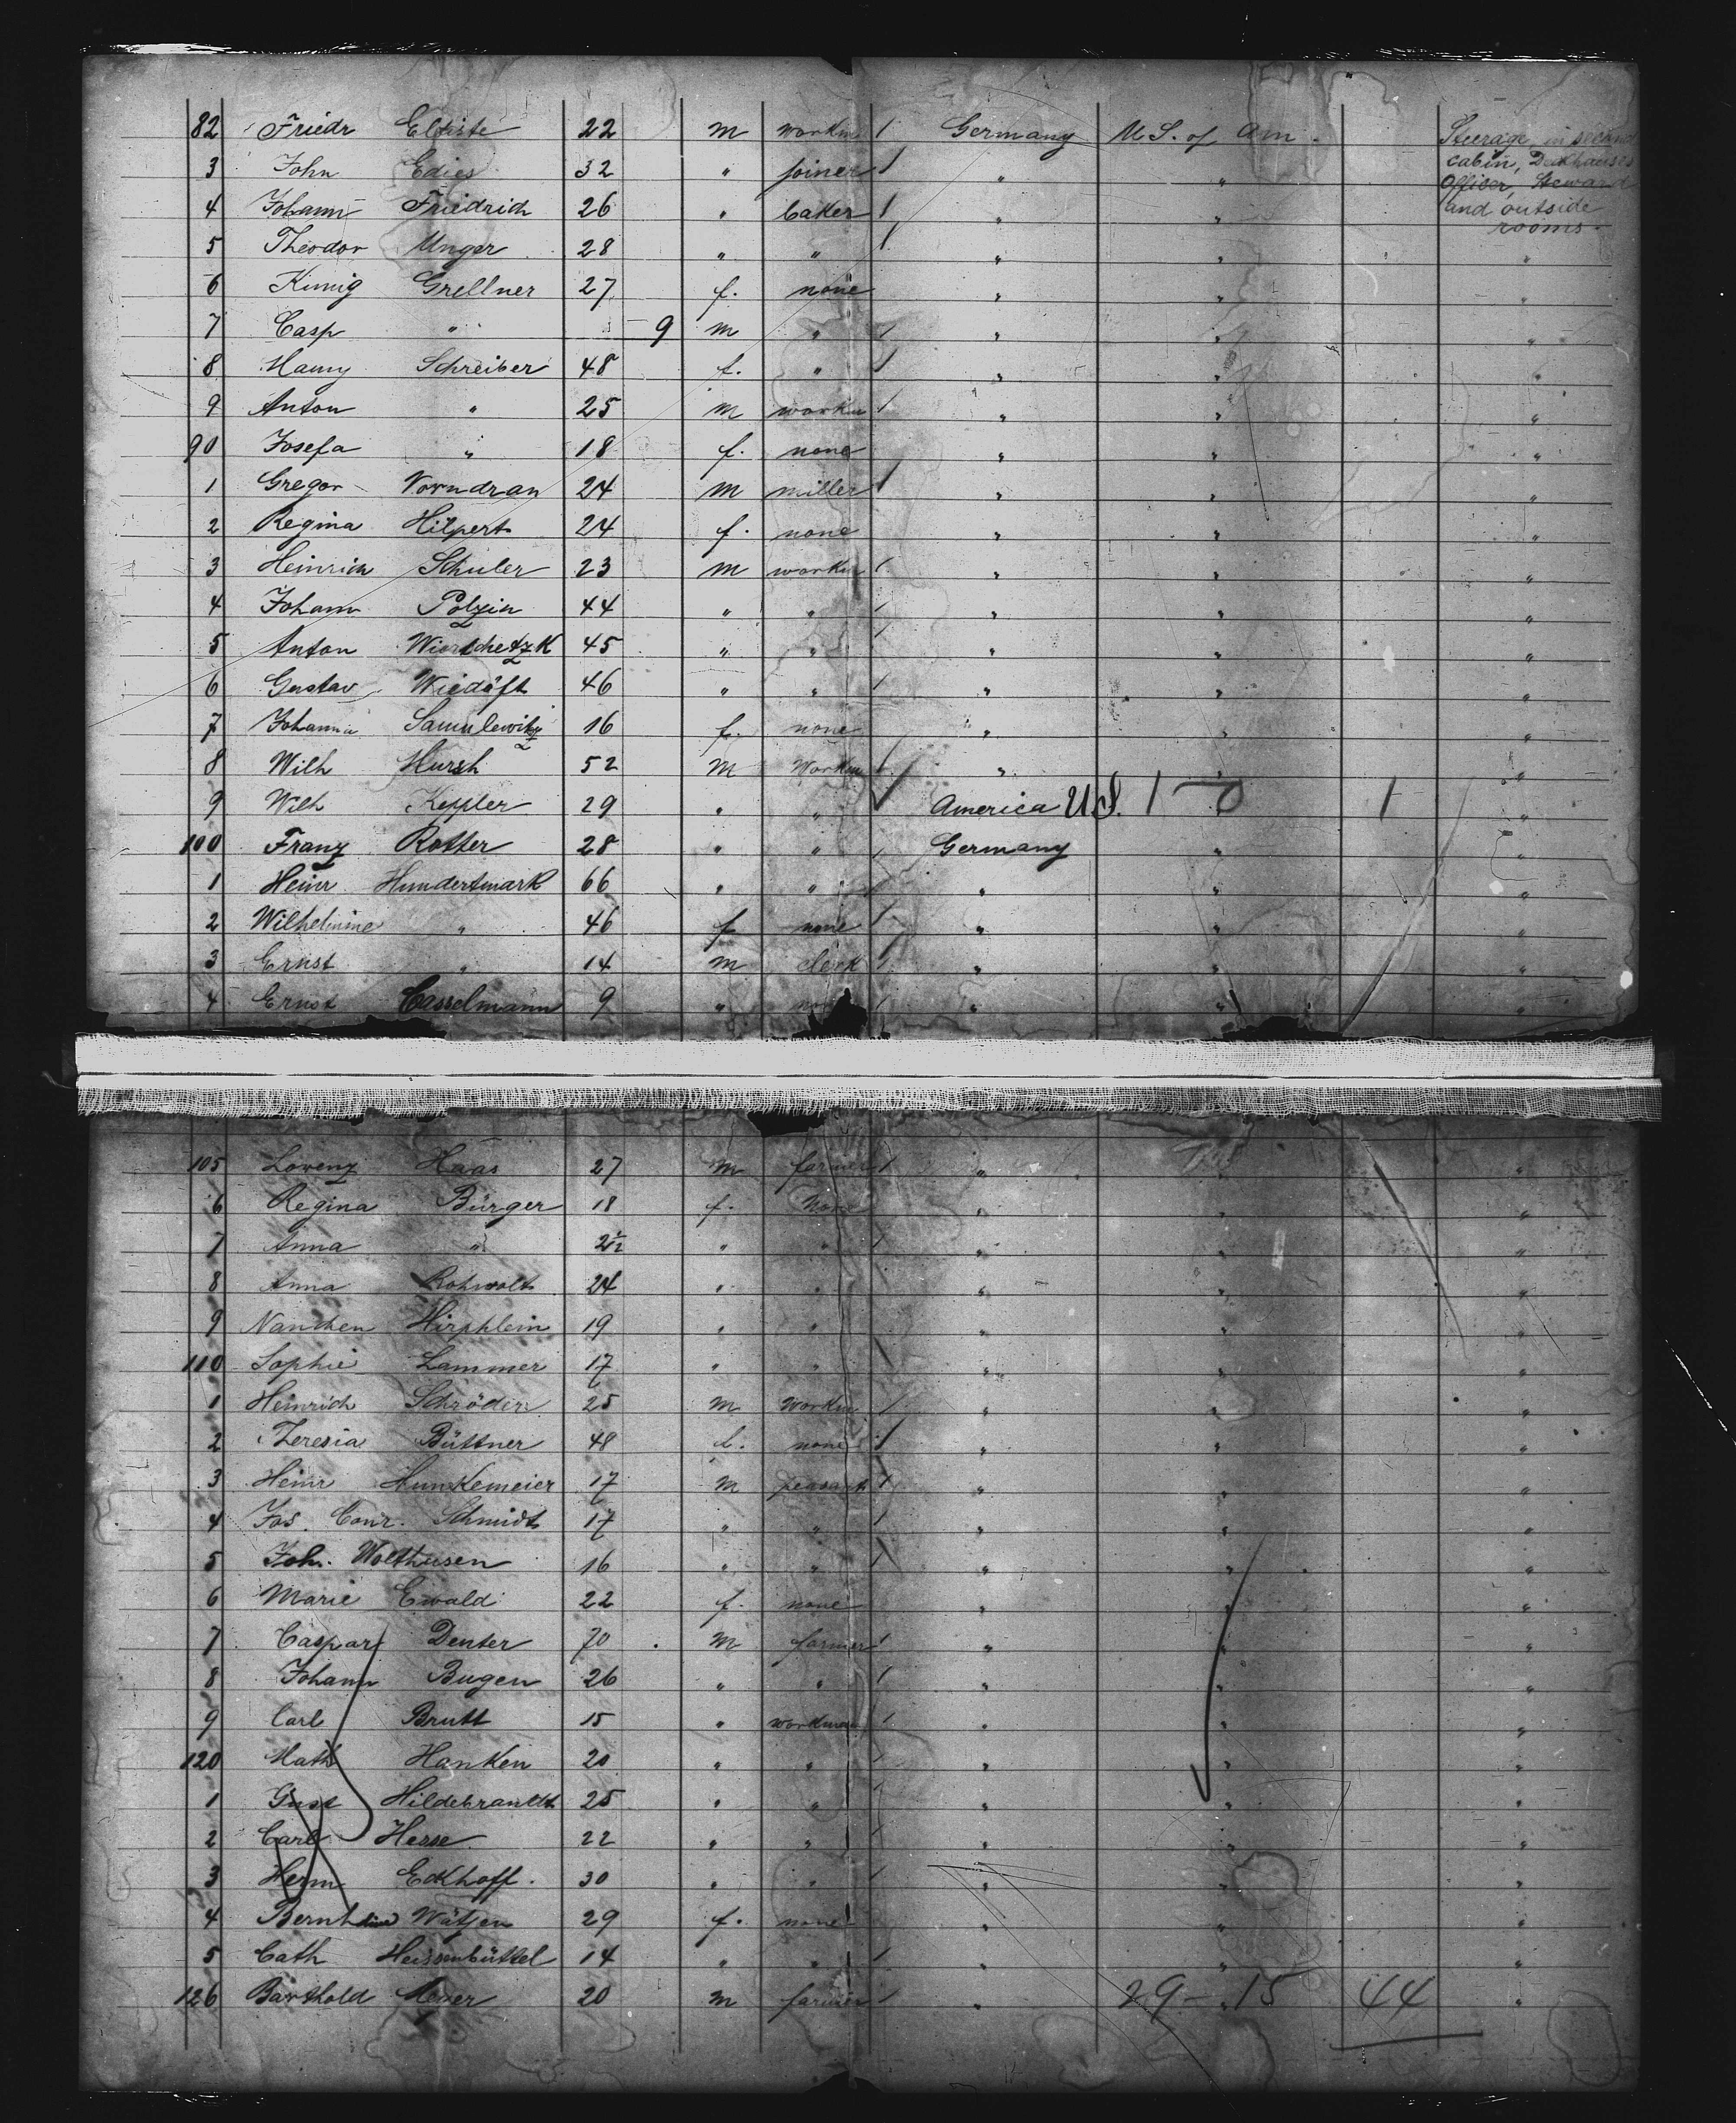 82 Friedr Elbiste 22 m workm 1 Germany U.S. of Am. Steerage, in second
3 John Edies 32 " joiner 1 " " cabin, Deckhouses
Officer, Steward
4 Johann Friedrich 26 " baker 1 " " and outside
rooms.
5 Theodor Unger 28 " " 1 " " "
6 Grellner 27 f. none " " "
7 Casp " 9 m " 1 " " "
8 Schreiber 48 f. " 1 " " "
9 Anton " 25 m workm 1 " " "
90 Josefa " 18 f. none " " "
1 Gregor Vorndran 24 m miller 1 " " "
2 Regina Hilpert 24 f. none " " "
3 Heinrich Schuler 23 m workm 1 " " "
4 Johann Polzin 44 " " 1 " " "
5 Anton 45 " " 1 " " "
6 Gustav Wiedöft 46 " " 1 " " "
7 Johanna Samulewitz 16 f. none " " "
8 Wilh Hursh 52 m Workm 1 " "
9 Wilh Keppler 29 " " America U.S. 1 — 0 1 "
100 Franz Rotter 28 " " 1 Germany " "
1 Heinr Hundertmark 66 " " 1 " " "
2 Wilhelmine " 46 f none 1 " " "
3 Ernst " 14 m clerk 1 " " "
4 Ernst Casselmann 9 " none 1 " " "
105 Lorenz Haas 27 m farmer 1 " " "
6 Regina Bürger 18 f. none " " "
7 Anna " 2½ " " 1 " " "
8 Anna Rohwolt 24 " " " " "
9 Nanchen Hirphlein 19 " " " " "
110 Sophie Lammer 17 " " " " "
1 Heinrich Schröder 25 m Workm 1 " " "
2 Theresia Büttner 48 f. none 1 " " "
3 Heinr Hunkemeier 17 m peasant 1 " " "
4 Jos. Conr. Schmidt 17 " " 1 " " "
5 Joh. Wolthusen 16 " " 1 " " "
6 Marie Ewald 22 f. none " " "
7 Caspar Denter 70 m farmer 1 " " "
8 Johann Bugen 26 " " 1 " " "
9 Carl Brutt 15 " workman 1 " " "
120 Math Hanken 20 " " 1 " " "
1 Gust Hildebrandt 25 " " 1 " " "
2 Carl Hesse 22 " " 1 " " "
3 Herm Eckhoff. 30 " " 1 " " "
4 Wätjen 29 f. none " " "
5 Cath Heissenbüttel 14 " " 1 " " "
126 Barthold Meyer 20 m farmer 1 " 29 — 15 44 "